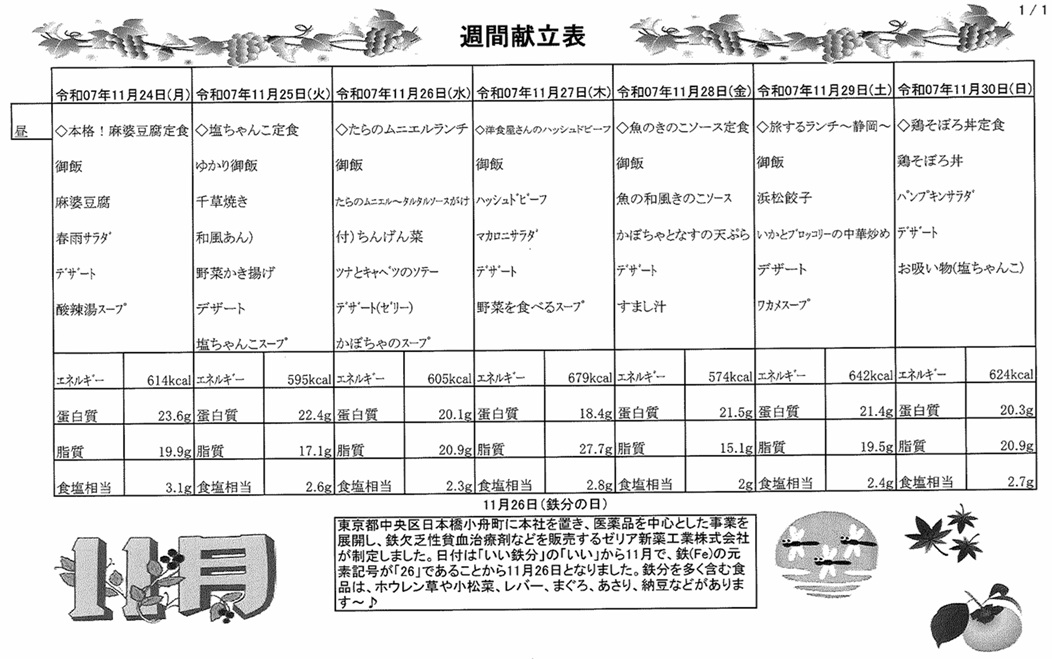 1/1
週間献立表
令和07年11月24日(月) 令和07年11月25日(火) 令和07年11月26日(水) 令和07年11月27日(木) 令和07年11月28日(金) 令和07年11月29日(土) 令和07年11月30日(日)
昼 ◇本格！麻婆豆腐定食 ◇塩ちゃんこ定食 ◇たらのムニエルランチ ◇洋食屋さんのハッシュドビーフ ◇魚のきのこソース定食 ◇旅するランチ～静岡～ ◇鶏そぼろ丼定食
御飯 ゆかり御飯 御飯 御飯 御飯 御飯 鶏そぼろ丼
麻婆豆腐 千草焼き たらのムニエル～タルタルソースがけ ハッシュドビーフ 魚の和風きのこソース 浜松餃子 パンプキンサラダ
春雨サラダ 和風あん） 付）ちんげん菜 マカロニサラダ かぼちゃとなすの天ぷら いかとブロッコリーの中華炒め デザート
デザート 野菜かき揚げ ツナとキャベツのソテー デザート デザート デザート お吸い物(塩ちゃんこ)
酸辣湯スープ デザート デザート(ゼリー) 野菜を食べるスープ すまし汁 ワカメスープ
塩ちゃんこスープ かぼちゃのスープ
エネルギー 614kcal エネルギー 595kcal エネルギー 605kcal エネルギー 679kcal エネルギー 574kcal エネルギー 642kcal エネルギー 624kcal
蛋白質 23.6g 蛋白質 22.4g 蛋白質 20.1g 蛋白質 18.4g 蛋白質 21.5g 蛋白質 21.4g 蛋白質 20.3g
脂質 19.9g 脂質 17.1g 脂質 20.9g 脂質 27.7g 脂質 15.1g 脂質 19.5g 脂質 20.9g
食塩相当 3.1g 食塩相当 2.6g 食塩相当 2.3g 食塩相当 2.8g 食塩相当 2g 食塩相当 2.4g 食塩相当 2.7g
11月26日（鉄分の日）
東京都中央区日本橋小舟町に本社を置き、医薬品を中心とした事業を
展開し、鉄欠乏性貧血治療剤などを販売するゼリア新薬工業株式会社
が制定しました。日付は「いい鉄分」の「いい」から11月で、鉄(Fe)の元
素記号が「26」であることから11月26日となりました。鉄分を多く含む食
品は、ホウレン草や小松菜、レバー、まぐろ、あさり、納豆などがありま
す～♪
11月